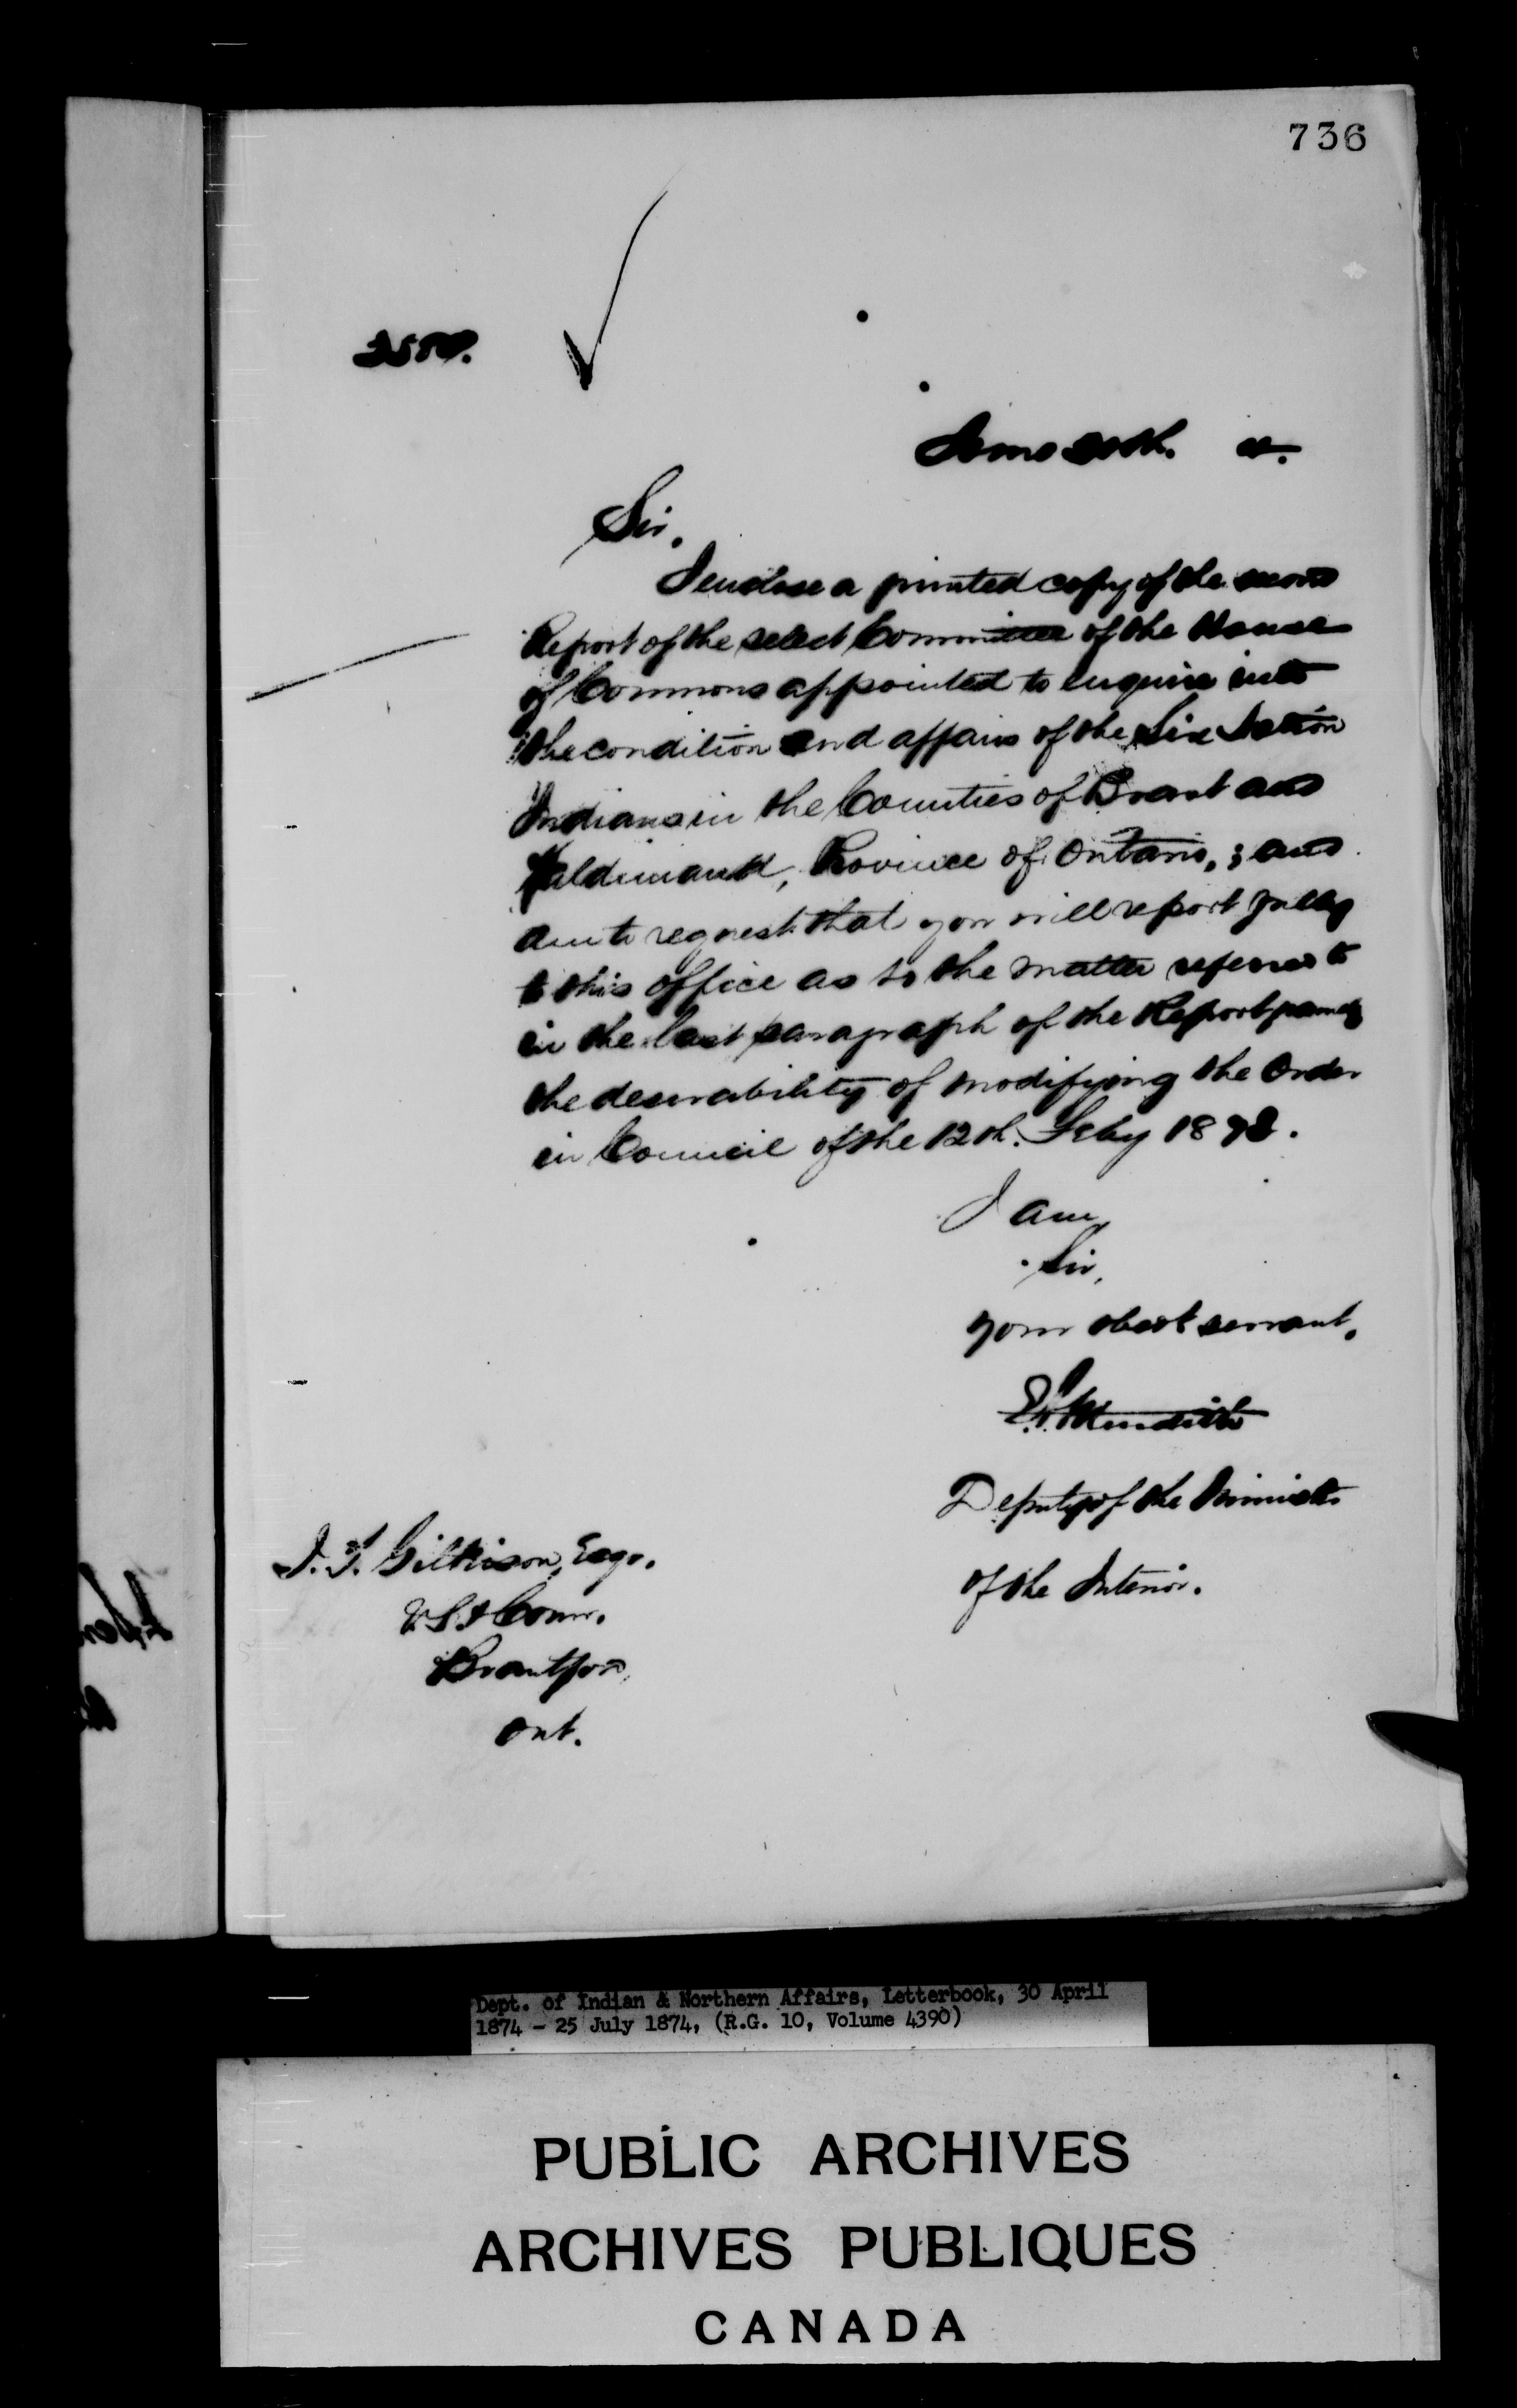 736
Sir,
I enclose a printed copy of the second
Report of the select Committee of the House
of Commons appointed to enquire into
the condition and affairs of the Six Nation
Indians in the Counties of Brant and
Haldimand, Province of Ontario,; and
am to request that you will report fully
to this office as to the matter referred to
in the last paragraph of the Report
the desirability of modifying the Order
in Council of the 12th. Feby
I am
Sir,
your obedt servant,
Meredith
Deputy of the Minister
of the Interior.
J. T. Gilkison, Esqr.
Brantford,
Ont.
Dept. of Indian & Northern Affairs, Letterbook, 30 April
1874 - 25 July 1874, (R.G. 10, Volume 4390)
PUBLIC ARCHIVES
ARCHIVES PUBLIQUES
CANADA